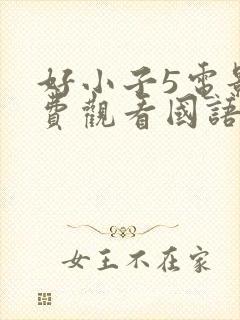 好小子5電影
費觀看國語
女王不在家